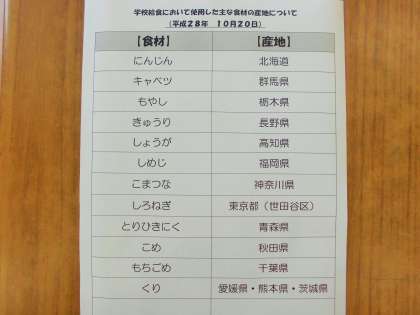 学校給食において使用した主な食材の産地について
（平成２８年　１０月２０日）
【食材】　【産地】
にんじん　北海道
キャベツ　群馬県
もやし　栃木県
きゅうり　長野県
しょうが　高知県
しめじ　福岡県
こまつな　神奈川県
しろねぎ　東京都（世田谷区）
とりひきにく　青森県
こめ　秋田県
もちごめ　千葉県
くり　愛媛県・熊本県・茨城県